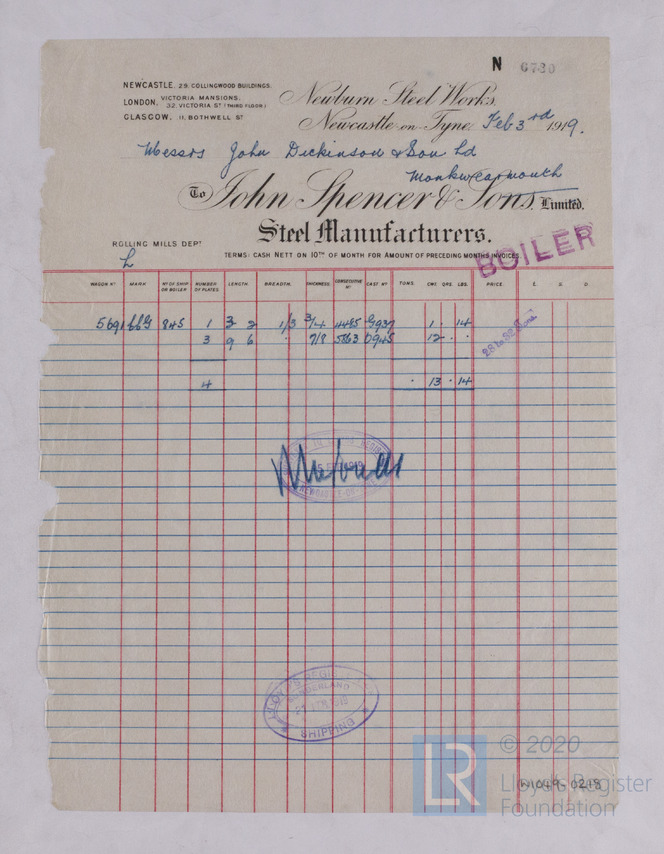 N 6730
NEWCASTLE. 29. COLLINGWOOD BUILDINGS.
LONDON. VICTORIA MANSIONS.
32. VICTORIA ST (THIRD FLOOR)
GLASGOW. 11. BOTHWELL ST
Newburn Steel Works,
Newcastle-on-Tyne. Feb 3rd 1919.
Messrs John Dickinson & Son Ld
Monkwearmouth
To John Spencer & Sons, Limited.
Steel Manufacturers.
ROLLING MILLS DEPT
TERMS: CASH NETT ON 10TH OF MONTH FOR AMOUNT OF PRECEDING MONTHS INVOICES
BOILER
WAGON NO MARK NO OF SHIP OR BOILER NUMBER OF PLATES LENGTH BREADTH THICKNESS CONSECUTIVE NO CAST NO TONS. CWT. QRS. LBS. PRICE. £ S. D.
5691 845 1 3 2 1/3 3/4 4485 G937 1 · 14
3 9 6 7/8 5863 0945 12 · ·
28 to 32 Tons.
4 · 13 · 14
LLOYD'S REGISTER
SUNDERLAND
FEB 1919
SHIPPING
© 2020
LR
Lloyd's Register
Foundation
W1049-0218